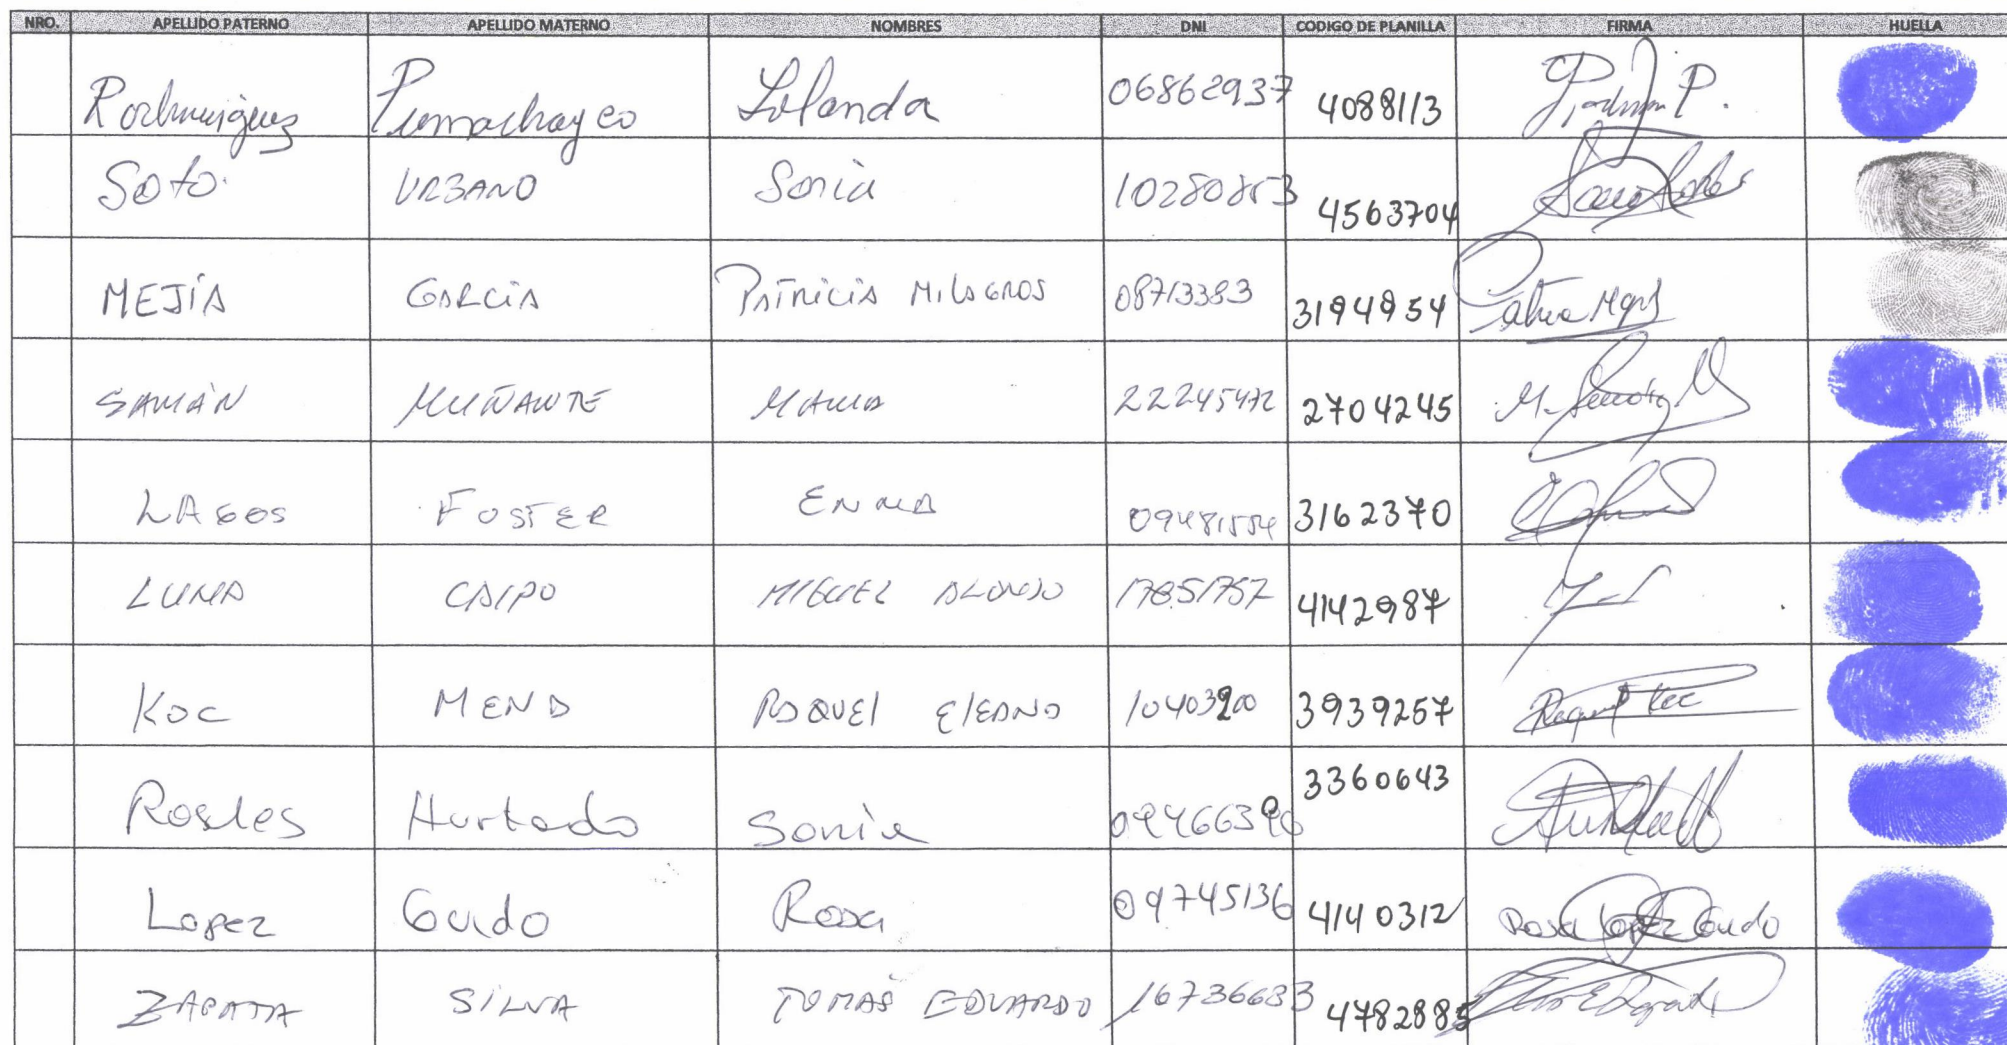 NRO. APELLIDO PATERNO APELLIDO MATERNO NOMBRES DNI CODIGO DE PLANILLA FIRMA HUELLA
Rodriguez Pumachayco Yolanda 06862937 4088113
Soto URBANO Sonia 10280853 4563704
MEJÍA GARCÍA PATRICIA MILAGROS 08713383 3194954
SAMÁN MUÑANTE MARIA 22245472 2704245
LAGOS FOSTER ENMA 09481554 3162370
LUNA CAIPO MIGUEL ALONSO 17851757 4142987
KOC MENA RAQUEL 10403200 3939257 Raquel Koc
Rosales Hurtado Sonia 3360643
Lopez Guido Rosa 09745136 4140312 Rosa Lopez Guido
ZAPATA SILVA TOMAS EDUARDO 16736633 4782885